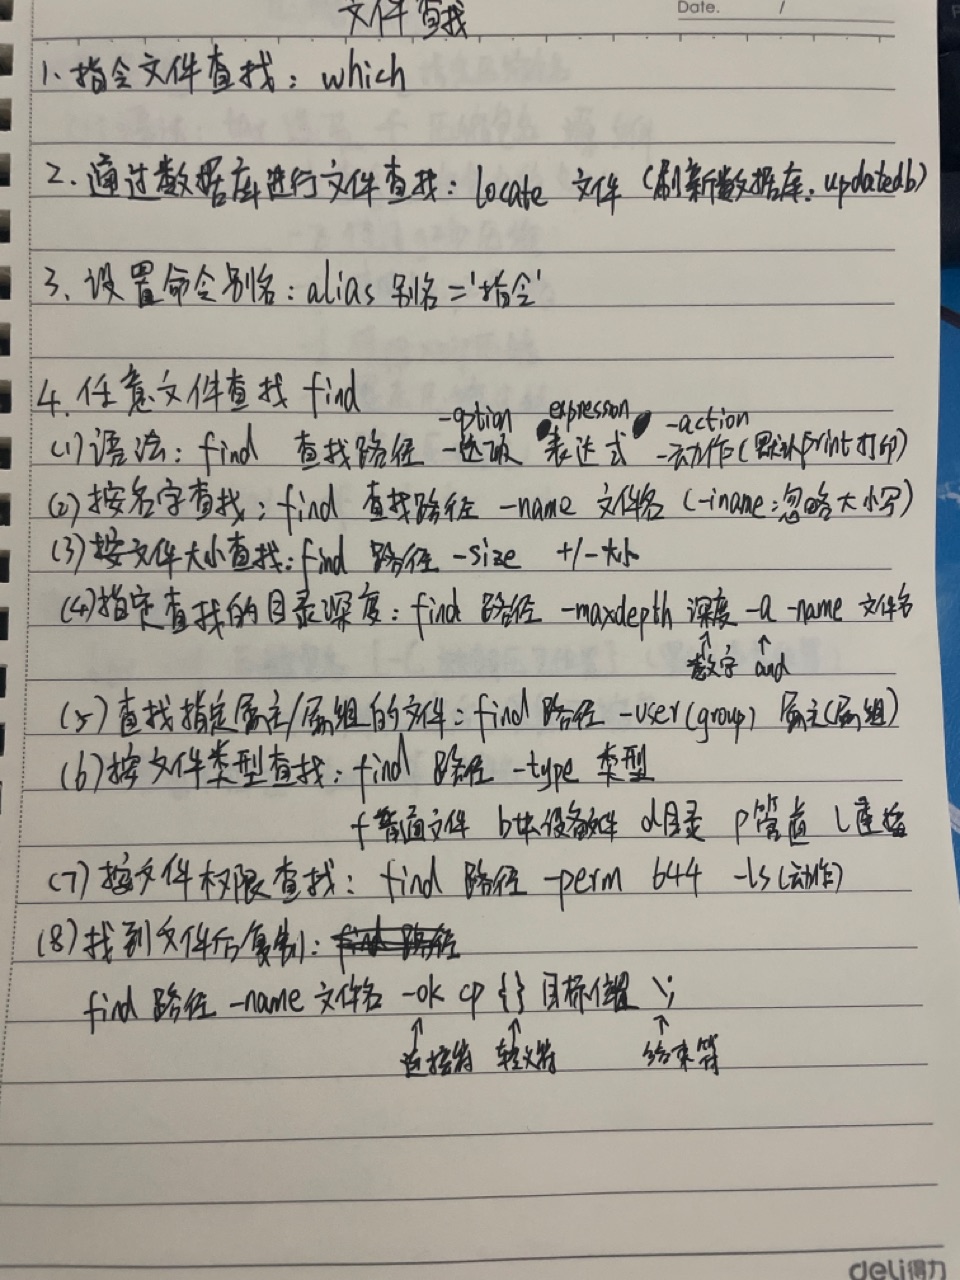 文件查找
Date. /
1、指令文件查找：which
2、通过数据库进行文件查找：locate 文件（刷新数据库：updatedb）
3、设置命令别名：alias 别名='指令'
4、任意文件查找 find
-option expression -action
(1)语法：find 查找路径 -选项 表达式 -动作(默认print打印)
(2)按名字查找：find 查找路径 -name 文件名 (-iname:忽略大小写)
(3)按文件大小查找：find 路径 -size +/-大小
(4)指定查找的目录深度：find 路径 -maxdepth 深度 -a -name 文件名
↑ ↑
数字 and
(5)查找指定属主/属组的文件：find 路径 -user(group) 属主(属组)
(6)按文件类型查找：find 路径 -type 类型
f普通文件 b块设备文件 d目录 p管道 l连接
(7)按文件权限查找：find 路径 -perm 644 -ls(动作)
(8)找到文件后复制：find 路径
find 路径 -name 文件名 -ok cp {} 目标位置 \;
↑ ↑ ↑
连接符 转义符 结束符
deli得力